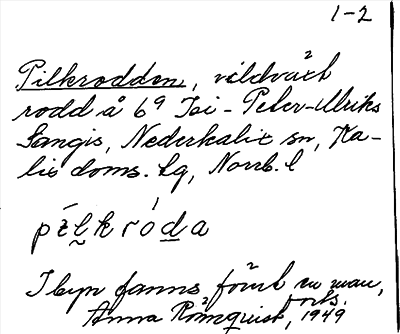 1-2
Pilkrodden, vildvuxt
rodd å 6⁹ Isi-Peter-Ulriks
Sangis, Nederkalix sn, Ka-
lix doms. tg, Norrb. l
I byn fanns förut en man,
Anna Rönnquist, forts. 1949